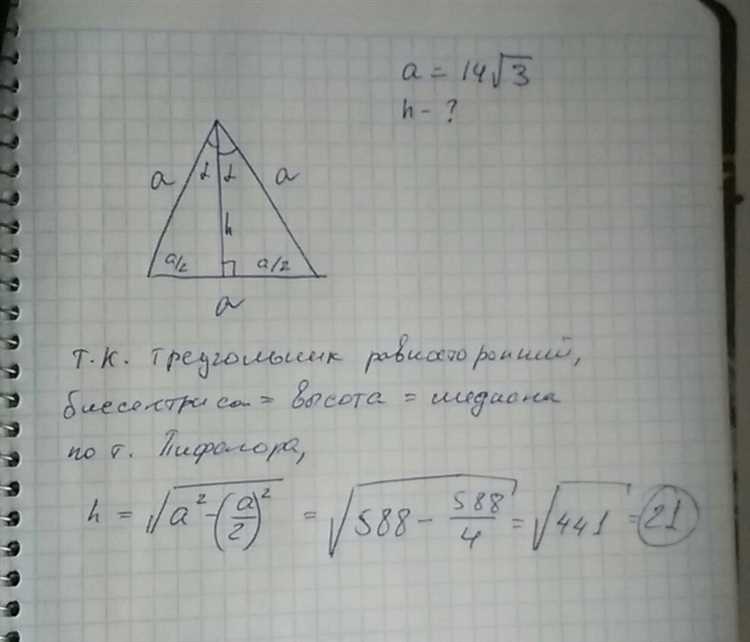 a = 14√3
h - ?
a
a
α
α
h
a/2
a/2
a
т.к. треугольник равносторонний,
биссектриса = высота = медиана
по т. Пифагора,
h = √(a² - (a/2)²) = √(588 - 588/4) = √441 = 21